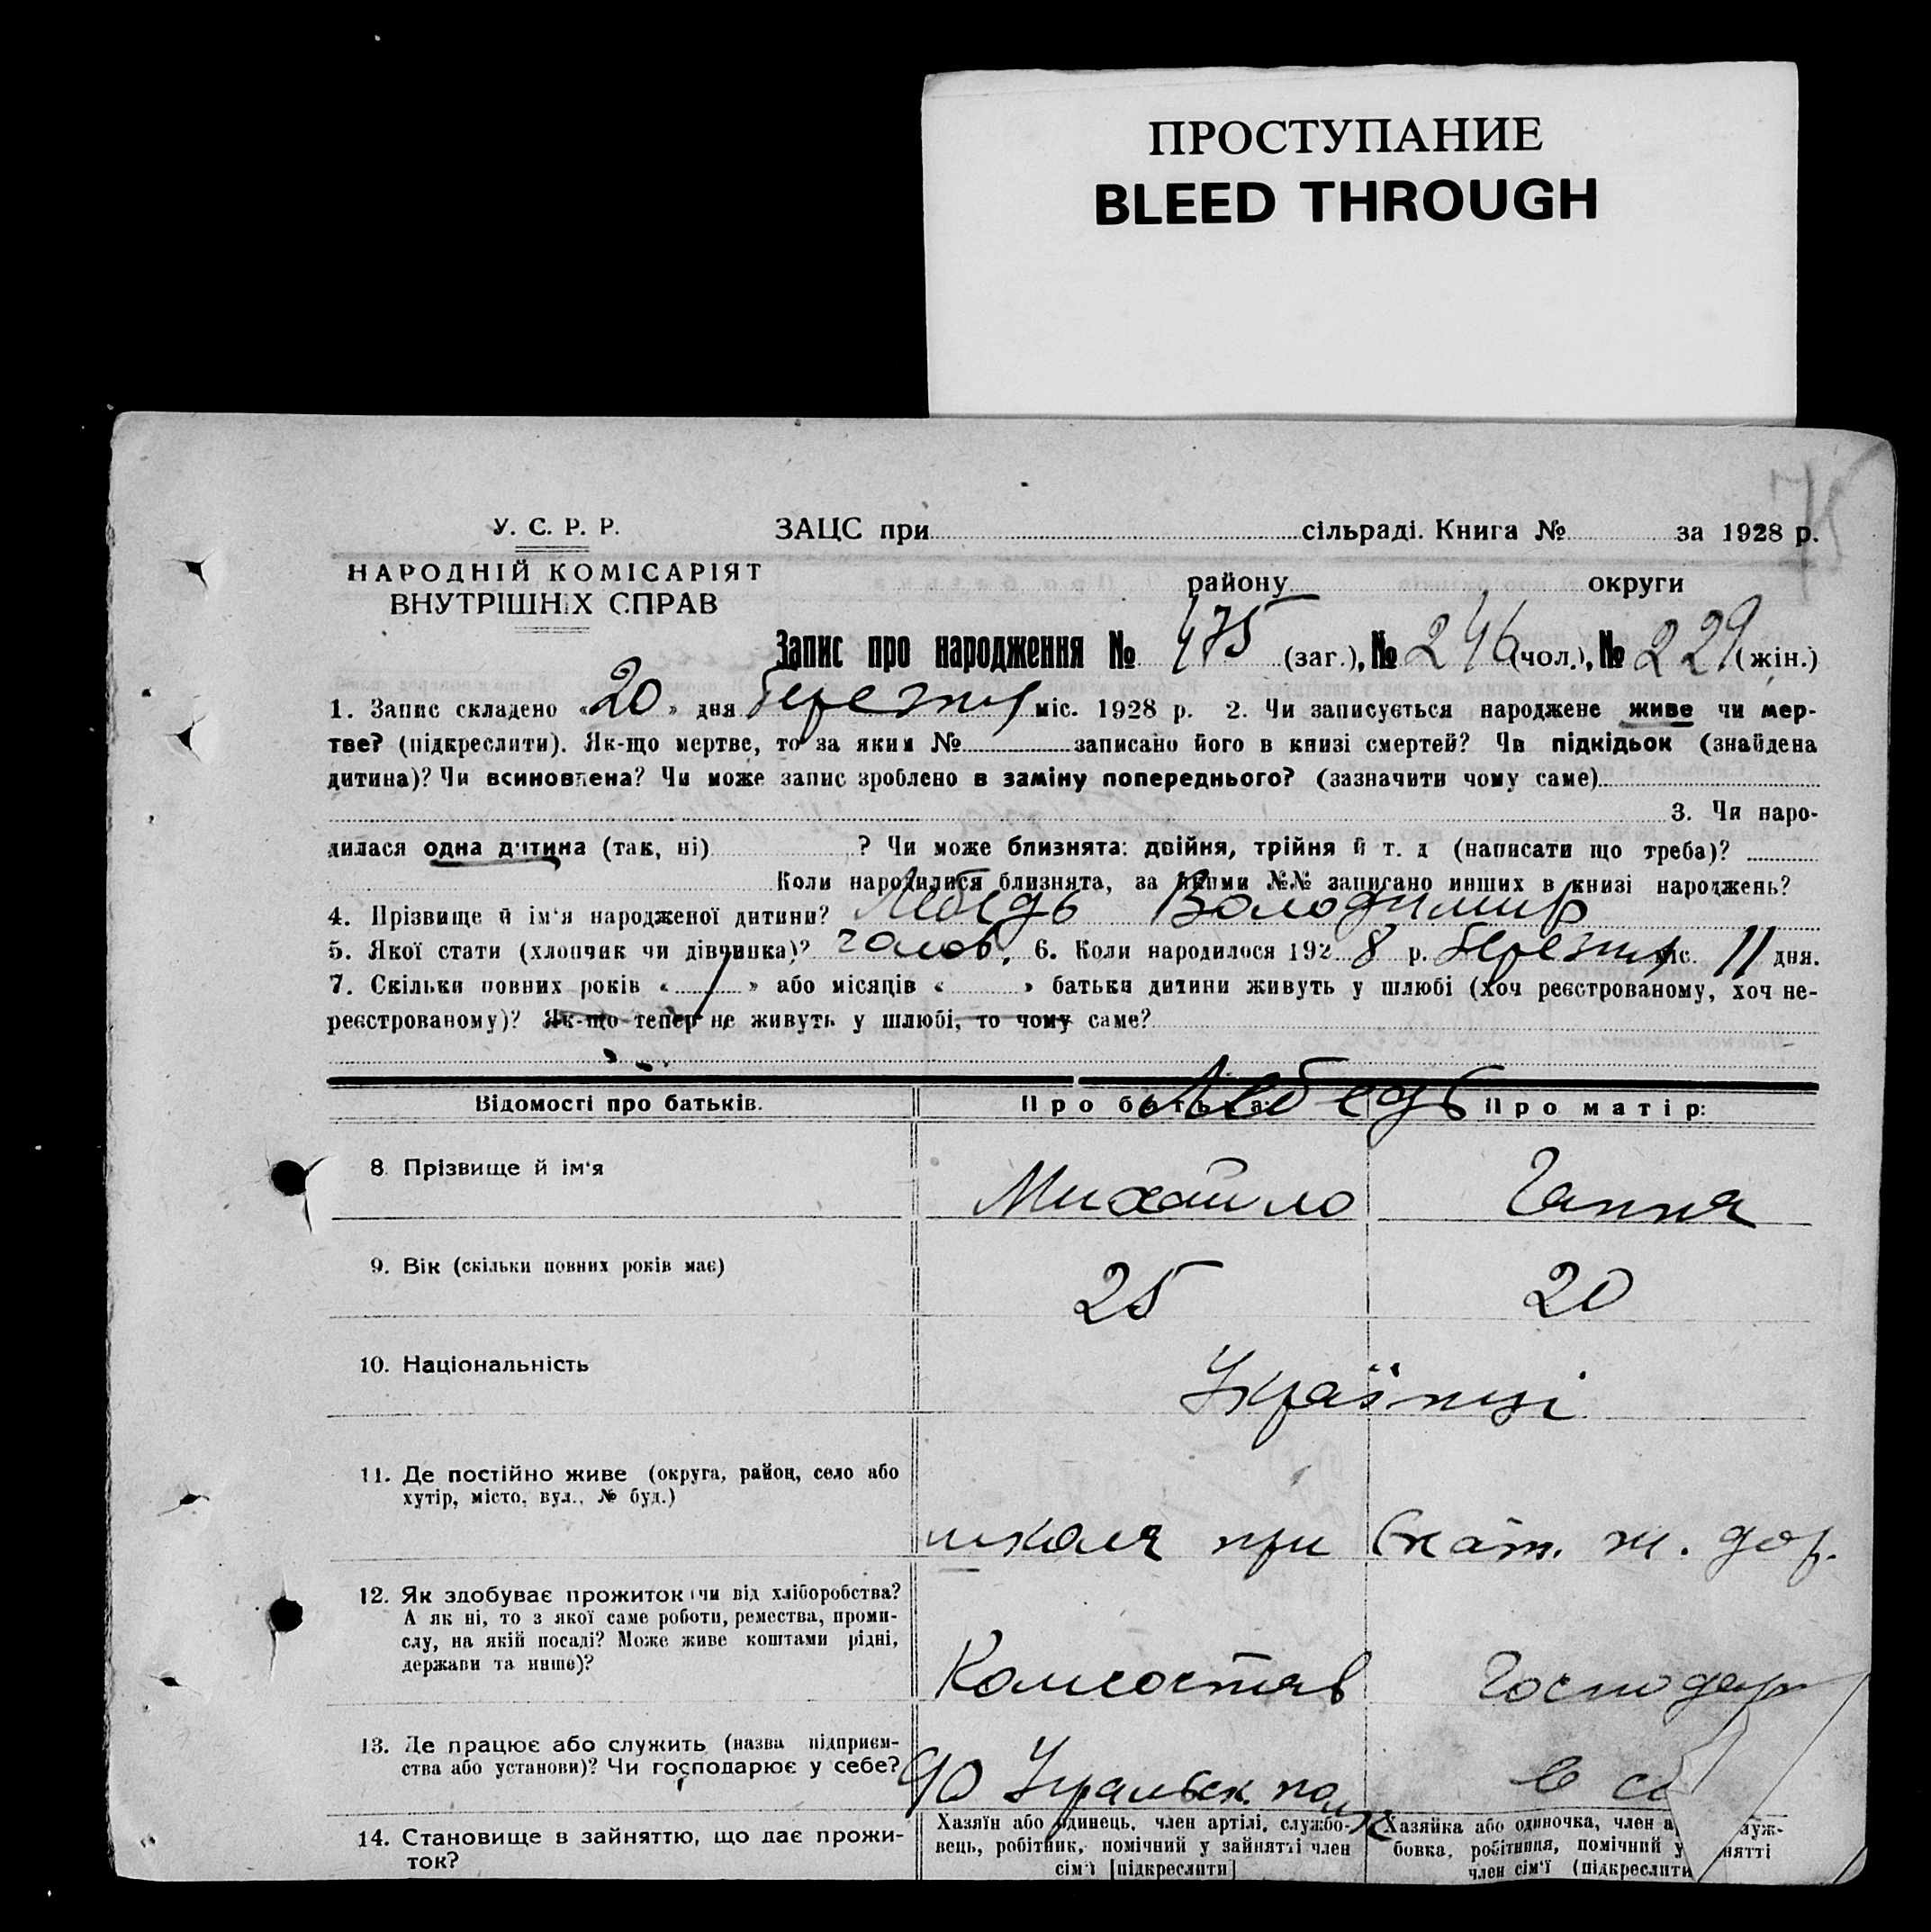 ПРОСТУПАНИЕ
BLEED THROUGH
У. С. Р. Р.
ЗАЦС при сільраді. Книга № за 1928 р.
НАРОДНІЙ КОМІСАРІЯТ
ВНУТРІШНІХ СПРАВ
району округи
Запис про народження № 475 (заг.), № 246 (чол.), № 229 (жін.)
1. Запис складено «20» дня березня міс. 1928 р. 2. Чи записується народжене живе чи мер-
тве? (підкреслити). Як-що мертве, то за яким № записано його в книзі смертей? Чи підкідьок (знайдена
дитина)? Чи всиновлена? Чи може запис зроблено в заміну попереднього? (зазначити чому саме)
3. Чи наро-
дилася одна дитина (так, ні) ? Чи може близнята: двійня, трійня й т. д (написати що треба)?
Коли народилися близнята, за якими №№ записано инших в книзі народжень?
4. Прізвище й ім'я народженої дитини? Лебедь Володимир
5. Якої стати (хлопчик чи дівчинка)? чолов. 6. Коли народилося 1928 р. березня міс. 11 дня.
7. Скільки повних років « 1 » або місяців « » батьки дитини живуть у шлюбі (хоч реєстрованому, хоч не-
реєстрованому)? Як-що тепер не живуть у шлюбі, то чому саме?
Лебедь
Відомості про батьків. Про батька: Про матір:
8. Прізвище й ім'я Михайло Ганна
9. Вік (скільки повних років має) 25 20
10. Національність Українці
11. Де постійно живе (округа, район, село або
хутір, місто, вул., № буд.)
школа при ж. дор.
12. Як здобуває прожиток (чи від хліборобства?
А як ні, то з якої саме роботи, ремества, проми-
слу, на якій посаді? Може живе коштами рідні,
держави та инше)?
Комсостав Господар
13. Де працює або служить (назва підприєм-
ства або установи)? Чи господарює у себе?
90 Уральск. полк в
14. Становище в зайняттю, що дає прожи-
ток?
Хазяїн або одинець, член артілі, службо-
вець, робітник, помічний у зайнятті член
сім'ї [підкреслити]
Хазяйка або одиночка, член а служ-
бовка, робітниця, помічний у нятті
член сім'ї (підкреслити